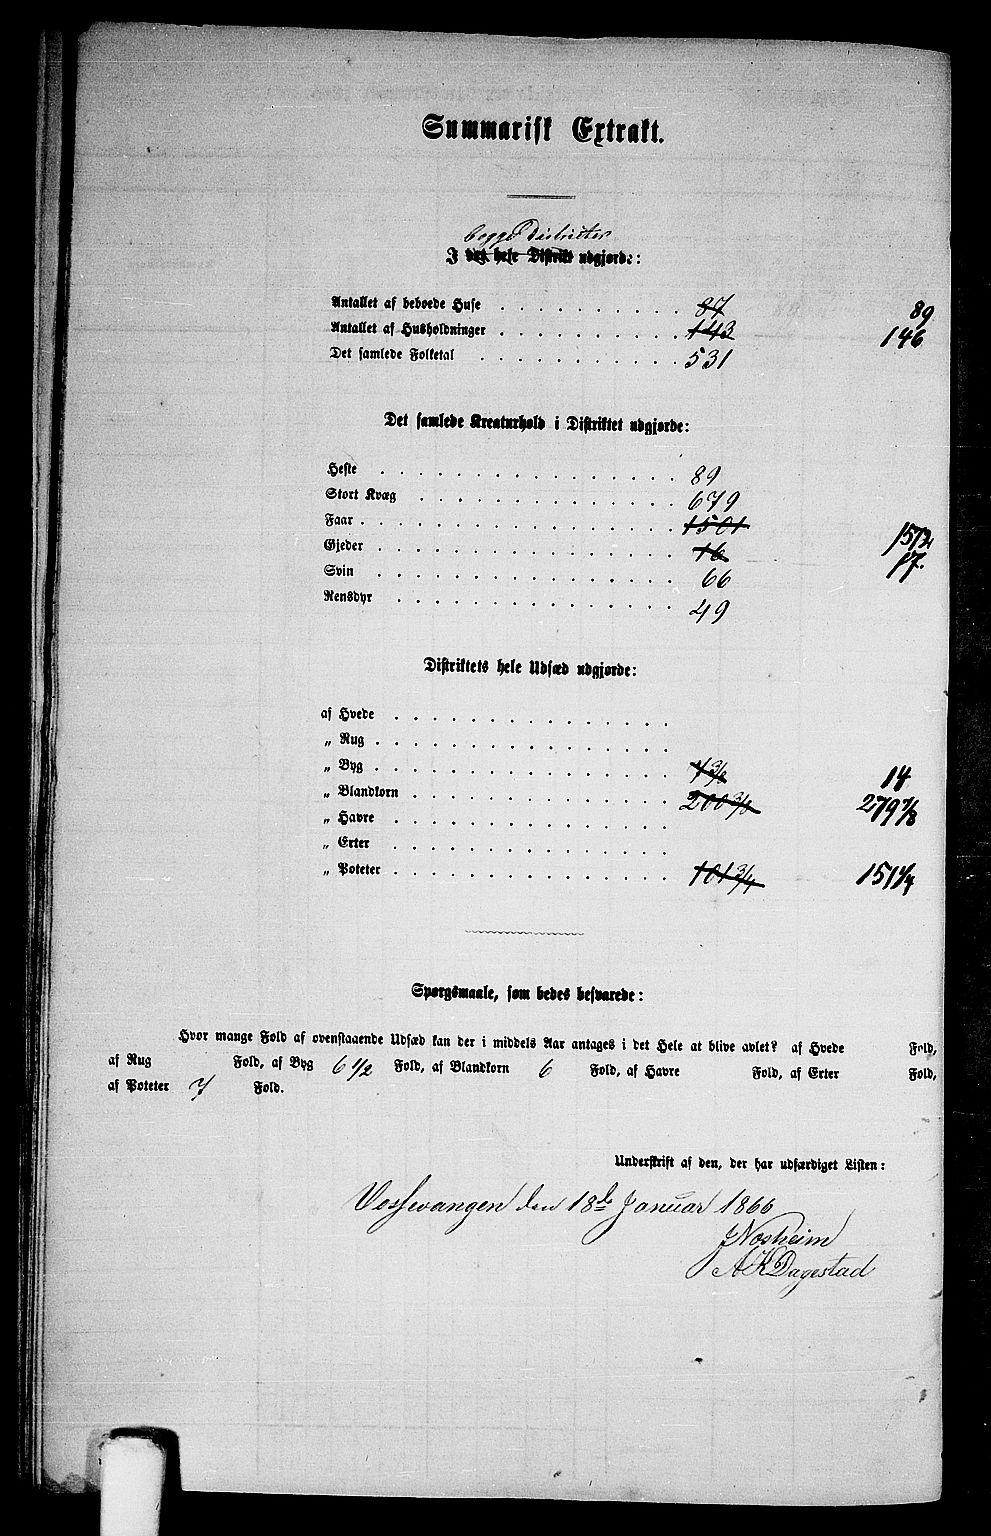 Summarisk Extrakt.
begge Districter
I det hele Distrikt udgjorde:
Antallet af beboede Huse 87 89
Antallet af Husholdninger 143 146
Det samlede Folketal 531
Det samlede Kreaturhold i Distriktet udgjorde:
Heste 89
Stort Kvæg 679
Faar 1501 1513
Gjeder 16 17.
Svin 66
Rensdyr 49
Distriktets hele Udsæd udgjorde:
af Hvede
„ Rug
„ Byg 14
„ Blandkorn 200 3/8 279 7/8
„ Havre
„ Erter
„ Poteter 101 3/4 151 1/4
Spørgsmaale, som bedes besvarede:
Hvor mange Fold af ovenstaaende Udsæd kan der i middels Aar antages i det Hele at blive avlet? af Hvede Fold,
af Rug Fold, af Byg 6 1/2 Fold, af Blandkorn 6 Fold, af Havre Fold, af Erter Fold,
af Poteter 7 Fold.
Underskrift af den, der har udfærdiget Listen:
Vossevangen den 18de Januar 1866
AK Dagestad